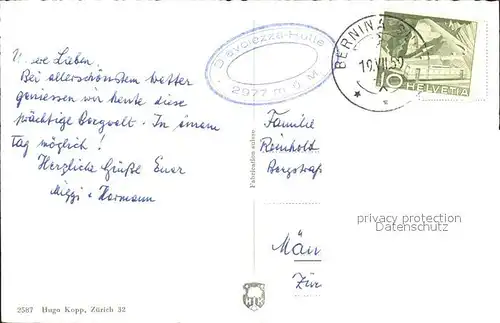 Diavolezza-Hütte
2977 m. ü. M.
BERNINA
19.VII.59
10
HELVETIA
Lieben.
Bei allerschönstem Wetter
geniessen wir heute diese
prächtige Bergwelt. In einem
Tag möglich!
Herzliche Grüße Euer
Miggi + Hermann
Fabrication suisse
Familie
Reinhold
Bergstraß
Män
Zür
privacy protection
Datenschutz
HK
2587 Hugo Kopp, Zürich 32